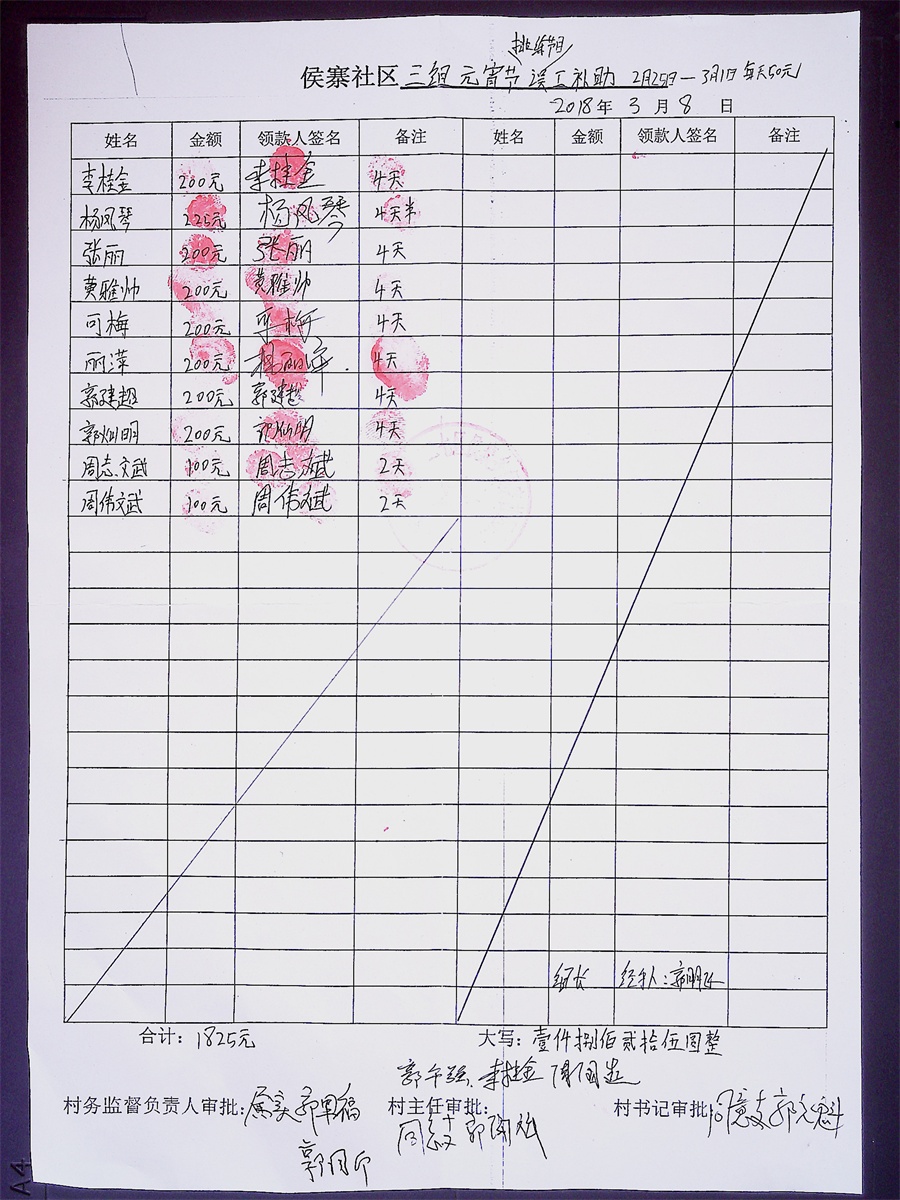 排练节目
侯寨社区 三组 元宵节 误工补助 2月25日—3月1日 每天50元
2018年 3 月 8 日
姓名 金额 领款人签名 备注 姓名 金额 领款人签名 备注
李桂金 200元 李桂金 4天
杨凤琴 225元 杨凤琴 4天半
张丽 200元 张丽 4天
黄雅帅 200元 黄雅帅 4天
可梅 200元 梅 4天
丽萍 200元 杨丽萍. 4天
郭建超 200元 郭建超 4天
郭灿明 200元 郭灿明 4天
周志斌 100元 周志斌 2天
周伟斌 100元 周伟斌 2天
组长 经手人:郭明
合计:1825元 大写:壹仟捌佰贰拾伍圆整
郭午强 李桂金 周国
村务监督负责人审批:属实 郭 福 村主任审批: 村书记审批:同意支 郭 魁
同意支 郭
郭